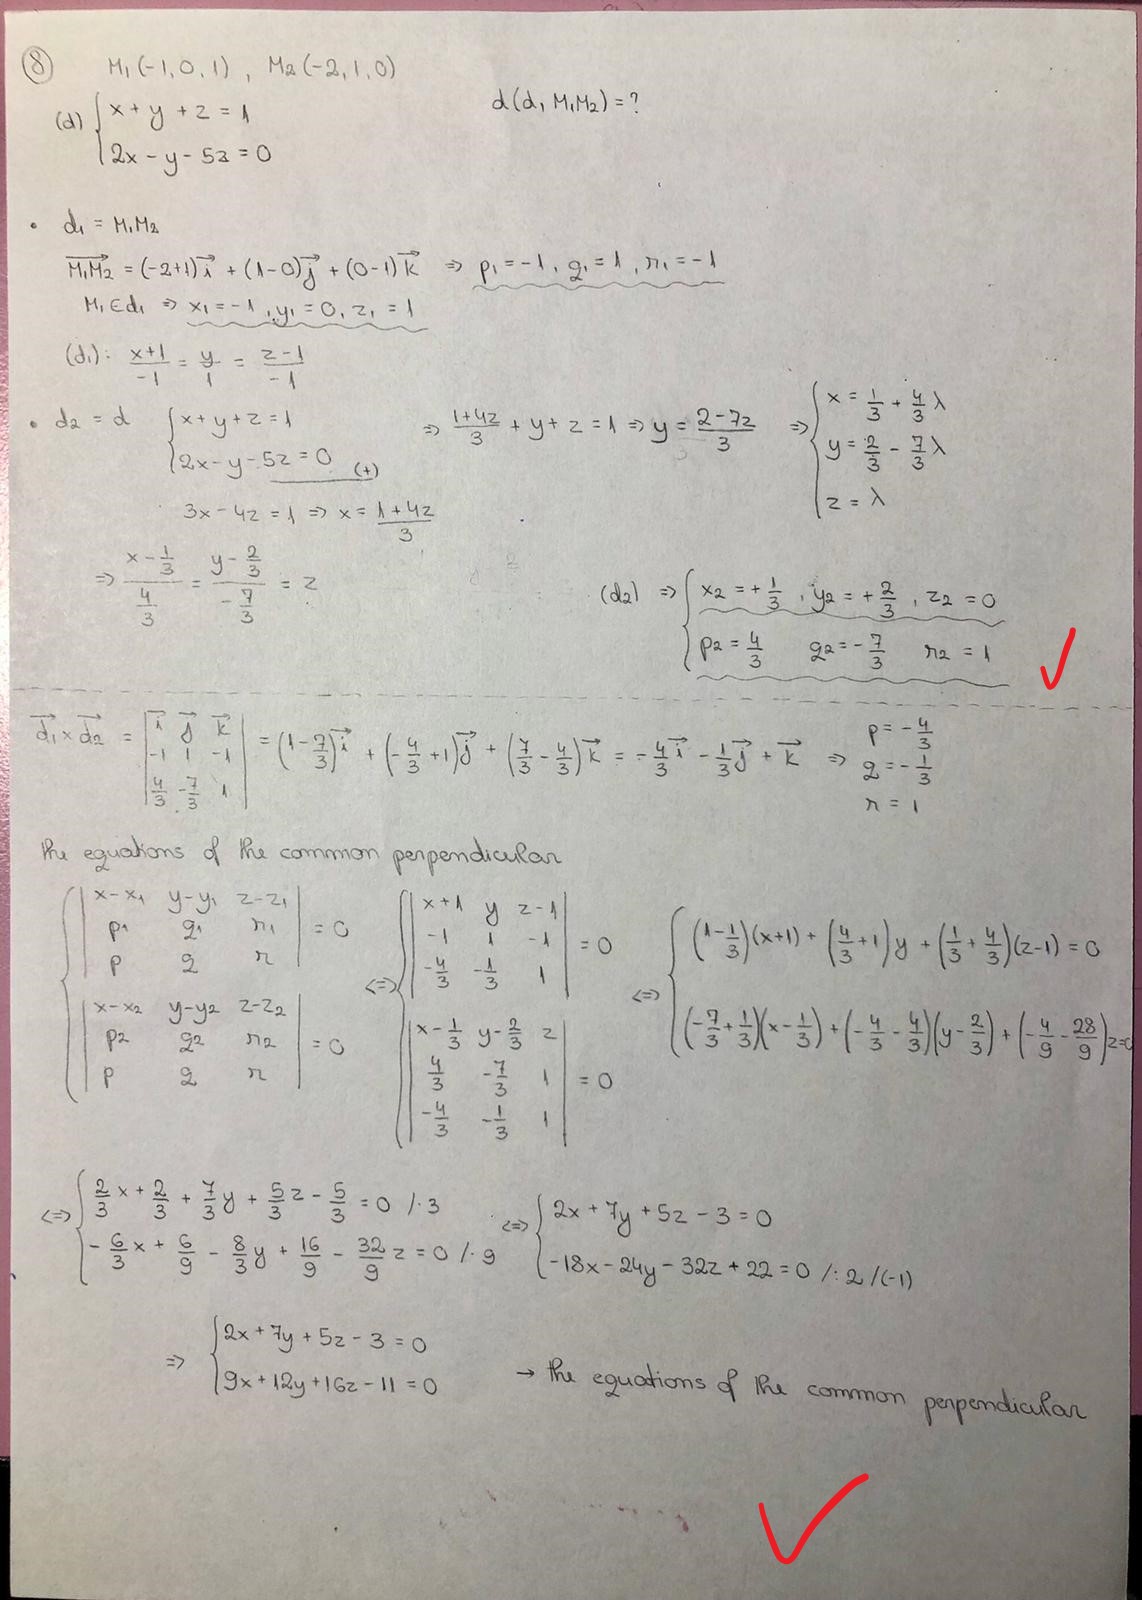 ⑧ M₁(-1,0,1) , M₂(-2,1,0)
d(d, M₁M₂) = ?
(d) { x + y + z = 1
2x - y - 5z = 0
• d₁ = M₁M₂
M₁M₂ = (-2+1)i + (1-0)j + (0-1)k ⇒ p₁ = -1, q₁ = 1, r₁ = -1
M₁∈d₁ ⇒ x₁ = -1, y₁ = 0, z₁ = 1
(d₁): (x+1)/-1 = y/1 = (z-1)/-1
• d₂ = d { x + y + z = 1
2x - y - 5z = 0 (+)
3x - 4z = 1 ⇒ x = (1+4z)/3
⇒ (1+4z)/3 + y + z = 1 ⇒ y = (2-7z)/3
⇒ { x = 1/3 + 4/3 λ
y = 2/3 - 7/3 λ
z = λ
⇒ (x - 1/3)/(4/3) = (y - 2/3)/(-7/3) = z
(d₂) ⇒ { x₂ = +1/3, y₂ = +2/3, z₂ = 0
p₂ = 4/3 q₂ = -7/3 r₂ = 1
d₁ × d₂ = | i j k |
| -1 1 -1 |
| 4/3 -7/3 1 |
= (1 - 7/3)i + (-4/3 + 1)j + (7/3 - 4/3)k = -4/3 i - 1/3 j + k ⇒ p = -4/3
q = -1/3
r = 1
the equations of the common perpendicular
{ | x-x₁ y-y₁ z-z₁ |
| p₁ q₁ r₁ | = 0
| p q r |
| x-x₂ y-y₂ z-z₂ |
| p₂ q₂ r₂ | = 0
| p q r |
⇔ { | x+1 y z-1 |
| -1 1 -1 | = 0
| -4/3 -1/3 1 |
| x-1/3 y-2/3 z |
| 4/3 -7/3 1 | = 0
| -4/3 -1/3 1 |
⇔ { (1-1/3)(x+1) + (4/3+1)y + (1/3+4/3)(z-1) = 0
(-7/3+1/3)(x-1/3) + (-4/3-4/3)(y-2/3) + (-4/9-28/9)z=0
⇔ { 2/3 x + 2/3 + 7/3 y + 5/3 z - 5/3 = 0 /·3
-6/3 x + 6/9 - 8/3 y + 16/9 - 32/9 z = 0 /·9
⇔ { 2x + 7y + 5z - 3 = 0
-18x - 24y - 32z + 22 = 0 /:2 /(-1)
⇒ { 2x + 7y + 5z - 3 = 0
9x + 12y + 16z - 11 = 0 → the equations of the common perpendicular